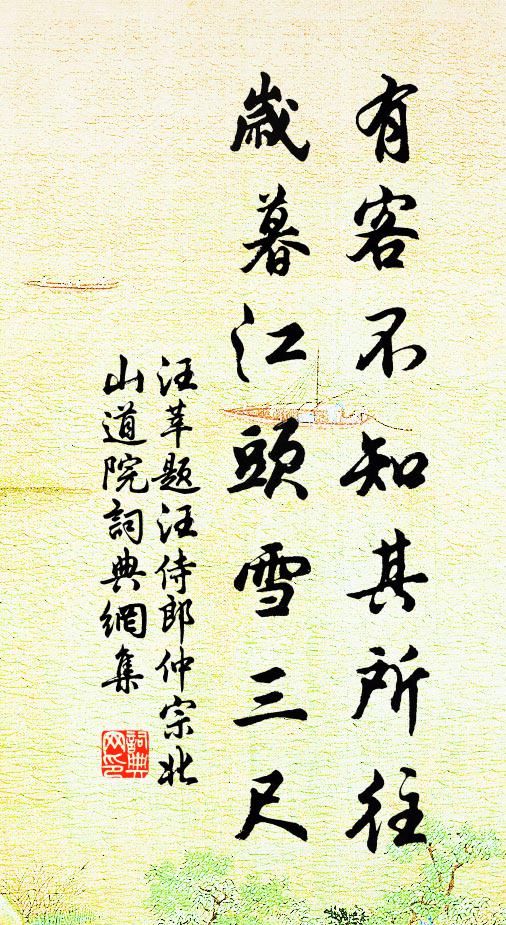 有客不知其所往
歲暮江頭雪三尺
汪莘題汪侍郎仲宗北
山道院詞典網集
詞典
网印